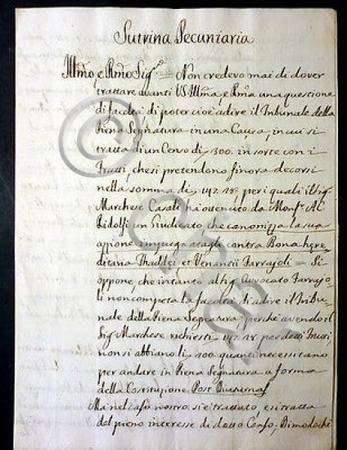 Sutrina Pecuniaria
Illmo, e Rmo Sigre = Non credevo mai di dover
trattare avanti VS Illma, e Rma una questione
di facoltà di poter cioè adire il Tribunale della
Piena Segnatura in una Causa, in cui si
tratta d'un Censo di 300. in sorte con i
frutti, che si pretendono finora decorsi
nella somma di 142. 25 per i quali il Sig
Marchese Casali ha ottenuto da Monsr AC
Ridolfi un Giudicato che canonizza la sua
azione contra Bona here
ditaria Thaddei et Venantii Farrajoli = Si
oppone, che intanto al Sig Avvocato Farrajo
li non competa la facoltà di adire il Tribu
nale della Piena Segnatura, perchè avendo il
Sig Marchese richiesti 142. 25 per detti frutti
non si abbiano li 200 quanti necessitano
per andare in Piena Segnatura a forma
della Costituzione Post Diuturnas
Ma nel caso nostro si è trattato, e si tratta
del pieno interesse di detto Censo,